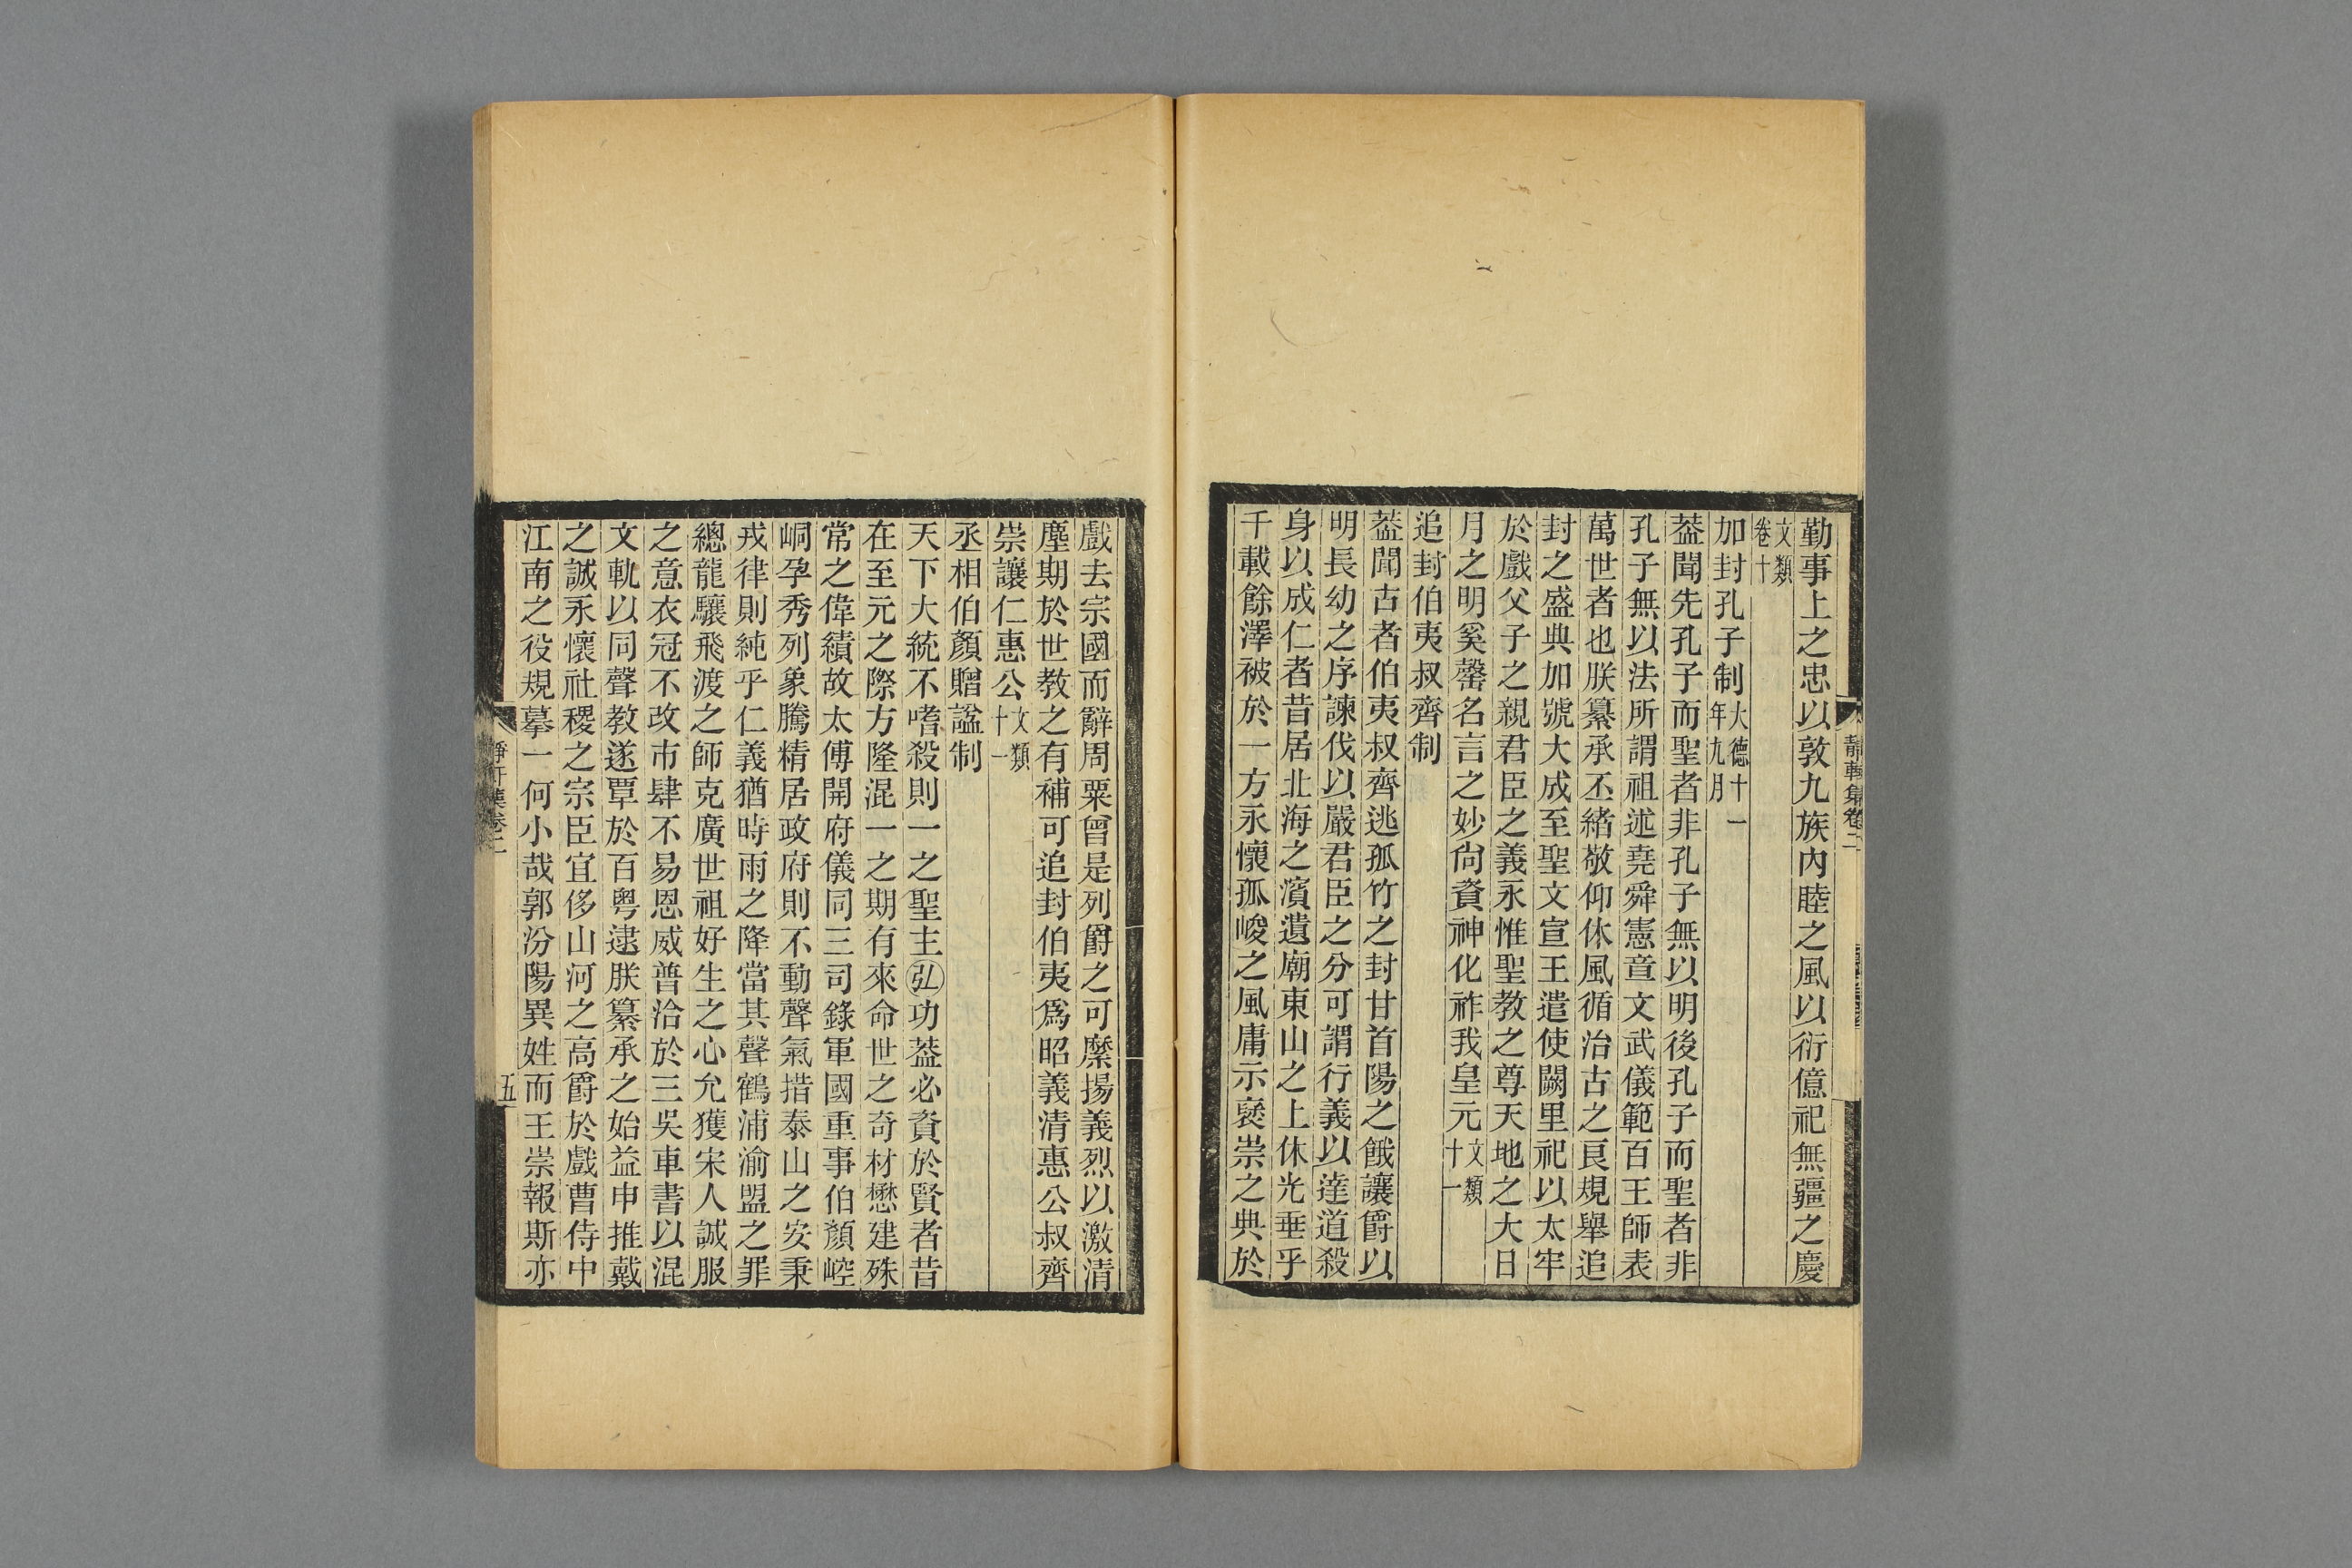 勤事上之忠以敦九族內睦之風以衍億祀無疆之慶
文類
卷十
加封孔子制大德十一
年九月
葢聞先孔子而聖者非孔子無以明後孔子而聖者非
孔子無以法所謂祖述堯舜憲章文武儀範百王師表
萬世者也朕纂承丕緒敬仰休風循治古之良規舉追
封之盛典加號大成至聖文宣王遣使闕里祀以太牢
於戲父子之親君臣之義永惟聖教之尊天地之大日
月之明奚罄名言之妙尙資神化祚我皇元文類
十一
追封伯夷叔齊制
葢聞古者伯夷叔齊逃孤竹之封甘首陽之餓讓爵以
明長幼之序諫伐以嚴君臣之分可謂行義以達道殺
身以成仁者昔居北海之濱遺廟東山之上休光垂乎
千載餘澤被於一方永懷孤峻之風庸示襃崇之典於
靜軒集卷二
戲去宗國而辭周粟曾是列爵之可縻揚義烈以激清
塵期於世教之有補可追封伯夷爲昭義清惠公叔齊
崇讓仁惠公文類
十一
丞相伯顏贈諡制
天下大統不嗜殺則一之聖主弘功葢必資於賢者昔
在至元之際方隆混一之期有來命世之奇材懋建殊
常之偉績故太傅開府儀同三司錄軍國重事伯顏崆
峒孕秀列象騰精居政府則不動聲氣措泰山之安秉
戎律則純乎仁義猶時雨之降當其聲鶴浦渝盟之罪
總龍驤飛渡之師克廣世祖好生之心允獲宋人誠服
之意衣冠不改市肆不易恩威普洽於三吳車書以混
文軌以同聲教遂覃於百粤逮朕纂承之始益申推戴
之誠永懷社稷之宗臣宜侈山河之高爵於戲曹侍中
江南之役規摹一何小哉郭汾陽異姓而王崇報斯亦
靜軒集卷二
五